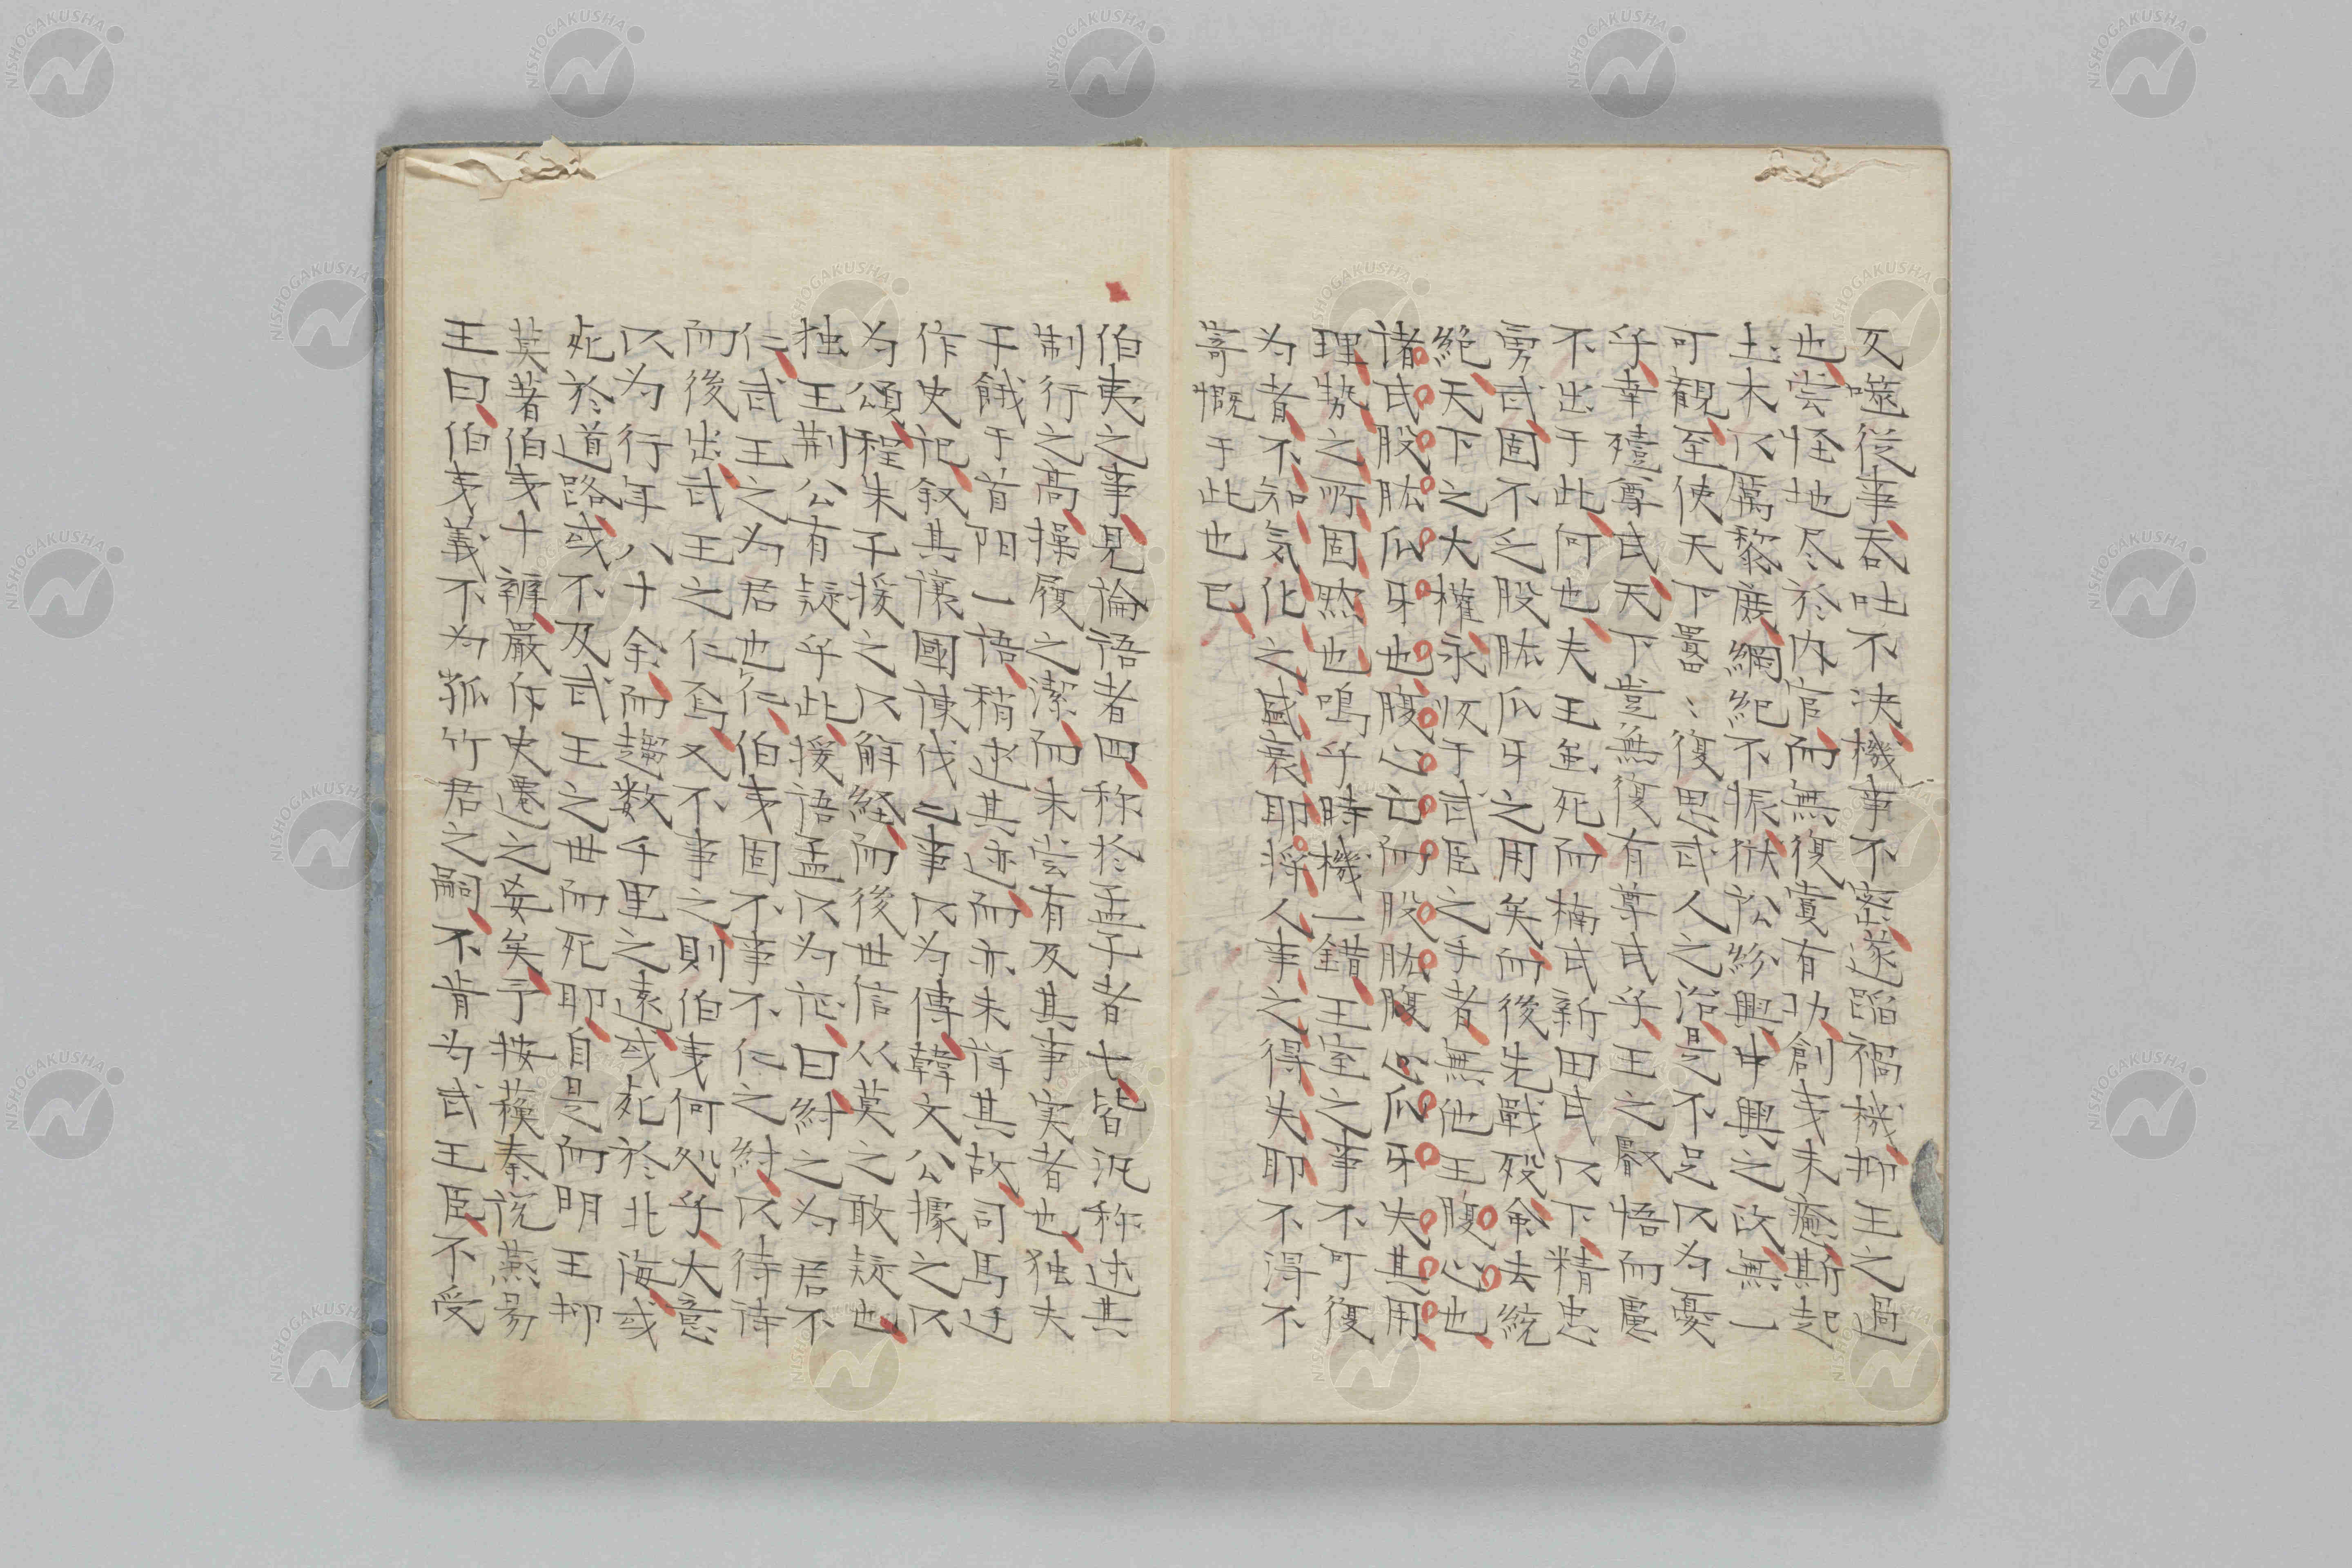 又噬従事吞吐不决機事不密遂蹈禍機抑王之過
也尝怪地尽於内官而無復賞有功創夷未癒斯起
土木以厲黎庶綱紀不振獄訟紛興中興之政無一
可観至使天下囂〻復思武人之治是不足以为憂
乎幸殪尊氏天下豈無復有尊氏乎王之嚴悟而慮
不出于此何也夫王并死而楠氏新田氏以下精忠
勇武固不乏股肱爪牙之用矣而後先戰殁命去統
絶天下之大權永収于武臣之手者無他王腹心也
諸氏股肱爪牙也腹心亡而股肱腹心爪牙失其用
理勢之所固然也嗚乎時機一錯王室之事不可復
为者不知気化之盛衰耶将人事之得失耶不得不
寄慨于此也已
伯夷之事見論語者四称於孟子者七皆汎称述其
制行之高操履之潔而未尝有及其事実者也独夫
子餓于首阳一語稍述其迹而亦未得其故司馬迁
作史記叙其讓國諫伐二事以为傳韓文公據之以
为頌程朱子援之以解経而後世信从莫之敢疑也
独王荆公有疑乎此援語孟以为証曰紂之为君不
仁武王之为君也仁伯夷固不事不仁之紂以待待
而後出武王之仁焉又不事之則伯夷何処乎大意
以为行年八十余而趨数千里之遠或死於北海或
死於道路或不及武王之世而死耶自是而明王抑
莫著伯夷十辨嚴斥史遷之妄矣予按蘓秦説燕易
王曰伯夷義不为孤竹君之嗣不肯为武王臣不受